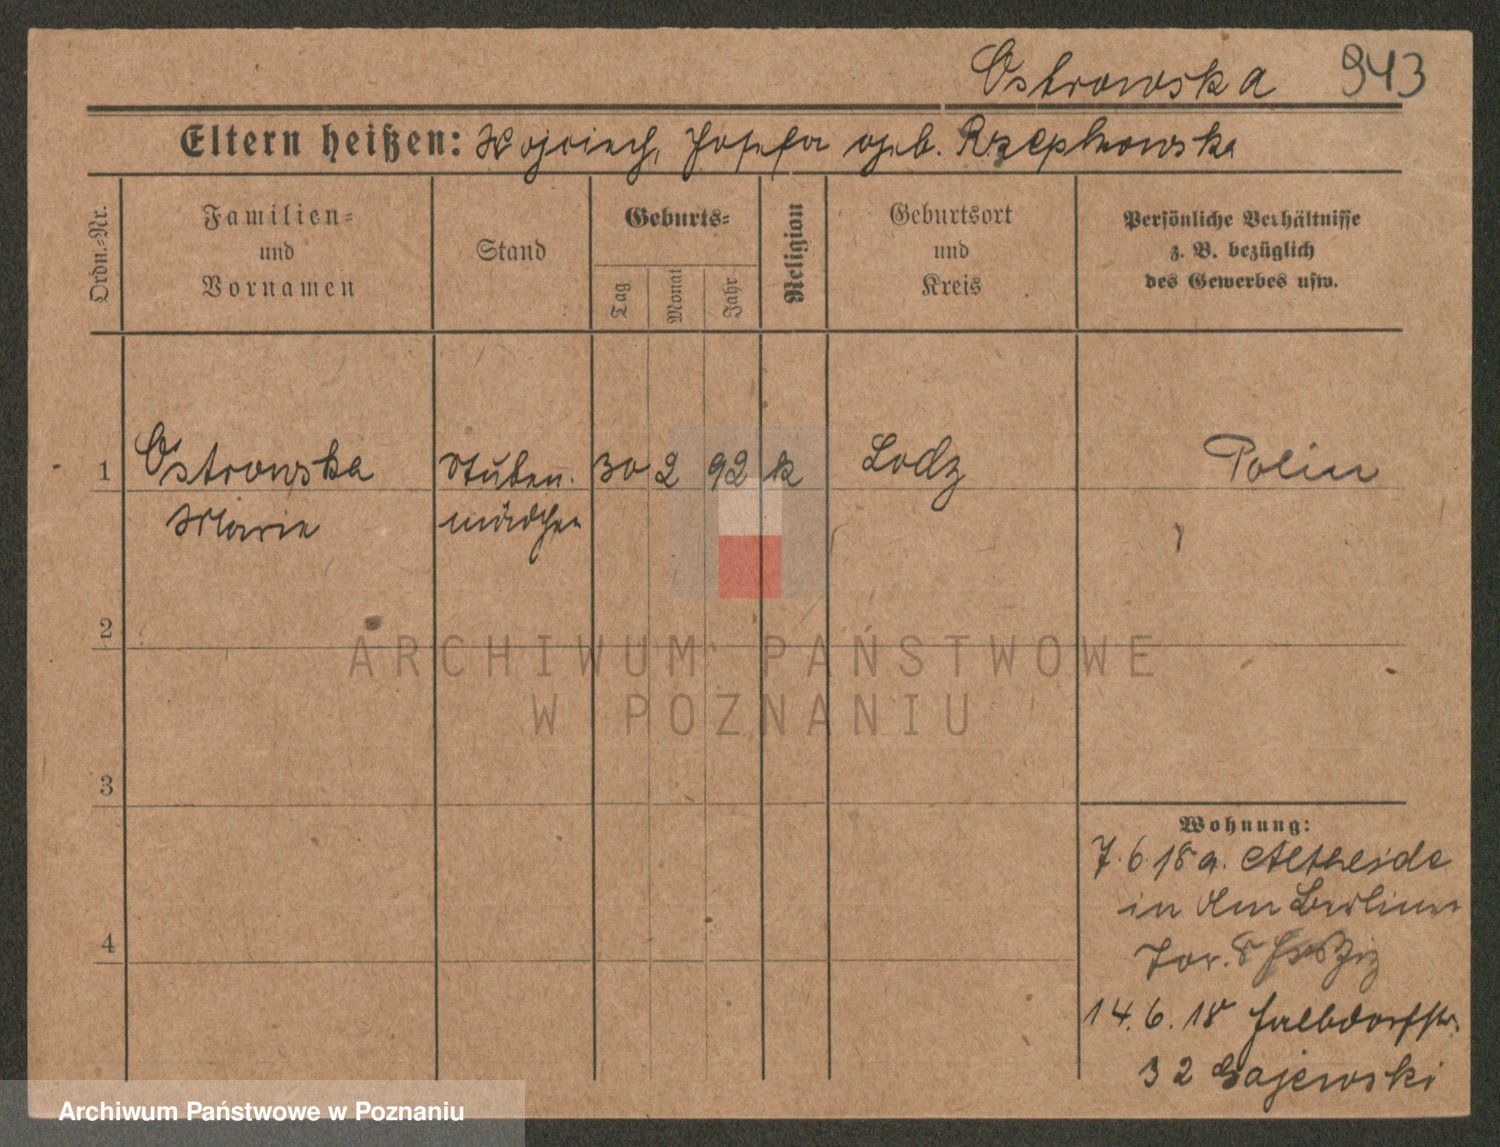 Ostrowska 943
Eltern heißen: Wojciech, Josefa geb. Rzepkowska
Ordn.-Nr.
Familien-
und
Vornamen
Stand
Geburts-
Tag
Monat
Jahr
Religion
Geburtsort
und
Kreis
Persönliche Verhältnisse
z. B. bezüglich
des Gewerbes usw.
1 Ostrowska Stuben- 30 2 92 k Lodz Polin
Marie mädchen
2
ARCHIWUM PAŃSTWOWE
W POZNANIU
3
Wohnung:
7.6.18 a. Altheide
in Am Berliner
4
Tor. 8
14.6.18 Halbdorfstr.
32 Gajewski
Archiwum Państwowe w Poznaniu